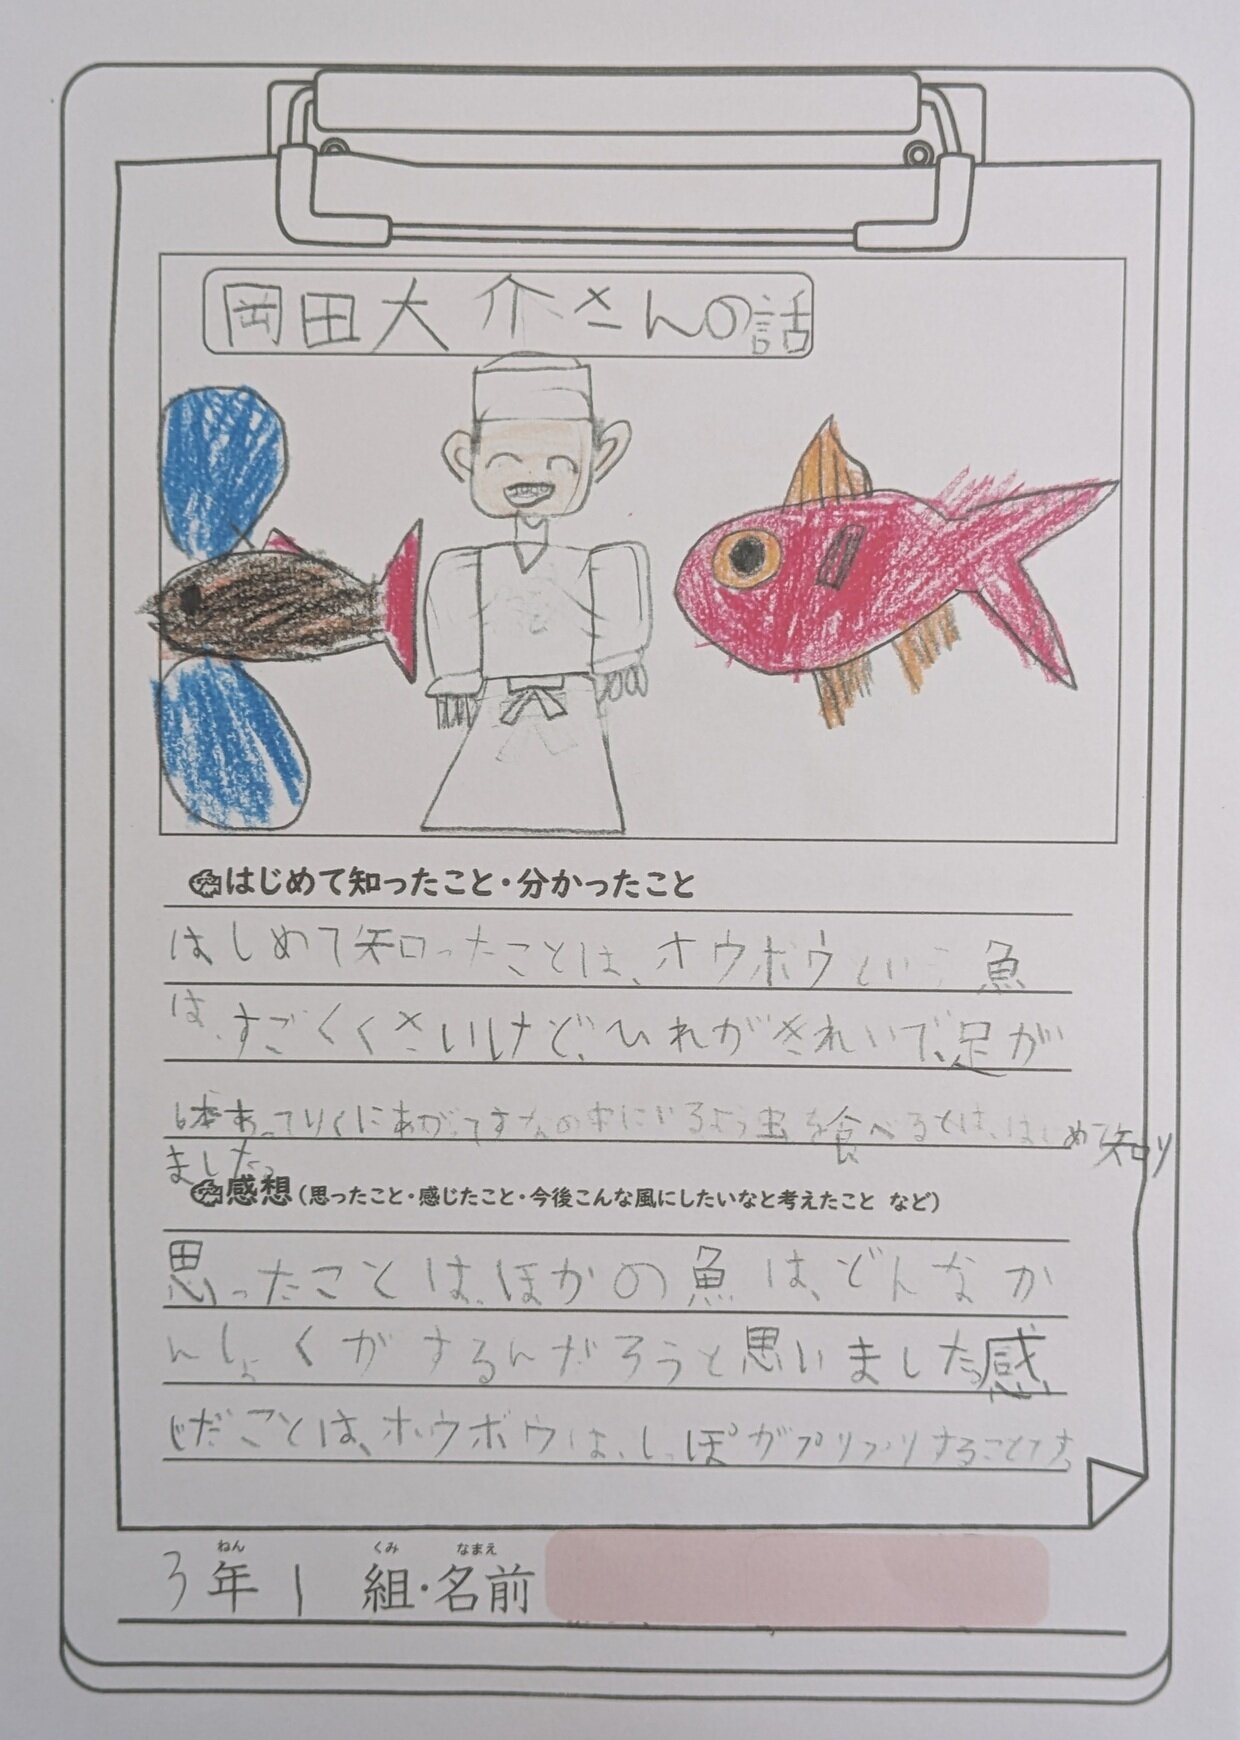 岡田大介さんの話
はじめて知ったこと・分かったこと
はしめて知ったことは、ホウボウという魚
は、すごくくさいけど、ひれがきれいで、足が
6本あってりくにあがってすなの中にいるよう虫を食べるとは、はじめて知り
ました。
感想(思ったこと・感じたこと・今後こんな風にしたいなと考えたこと など)
思ったことは、ほかの魚は、どんなか
んしょくがするんだろうと思いました。感
じだことは、ホウボウは、しっぽがプリプリすることです。
ねん くみ なまえ
3年1組・名前